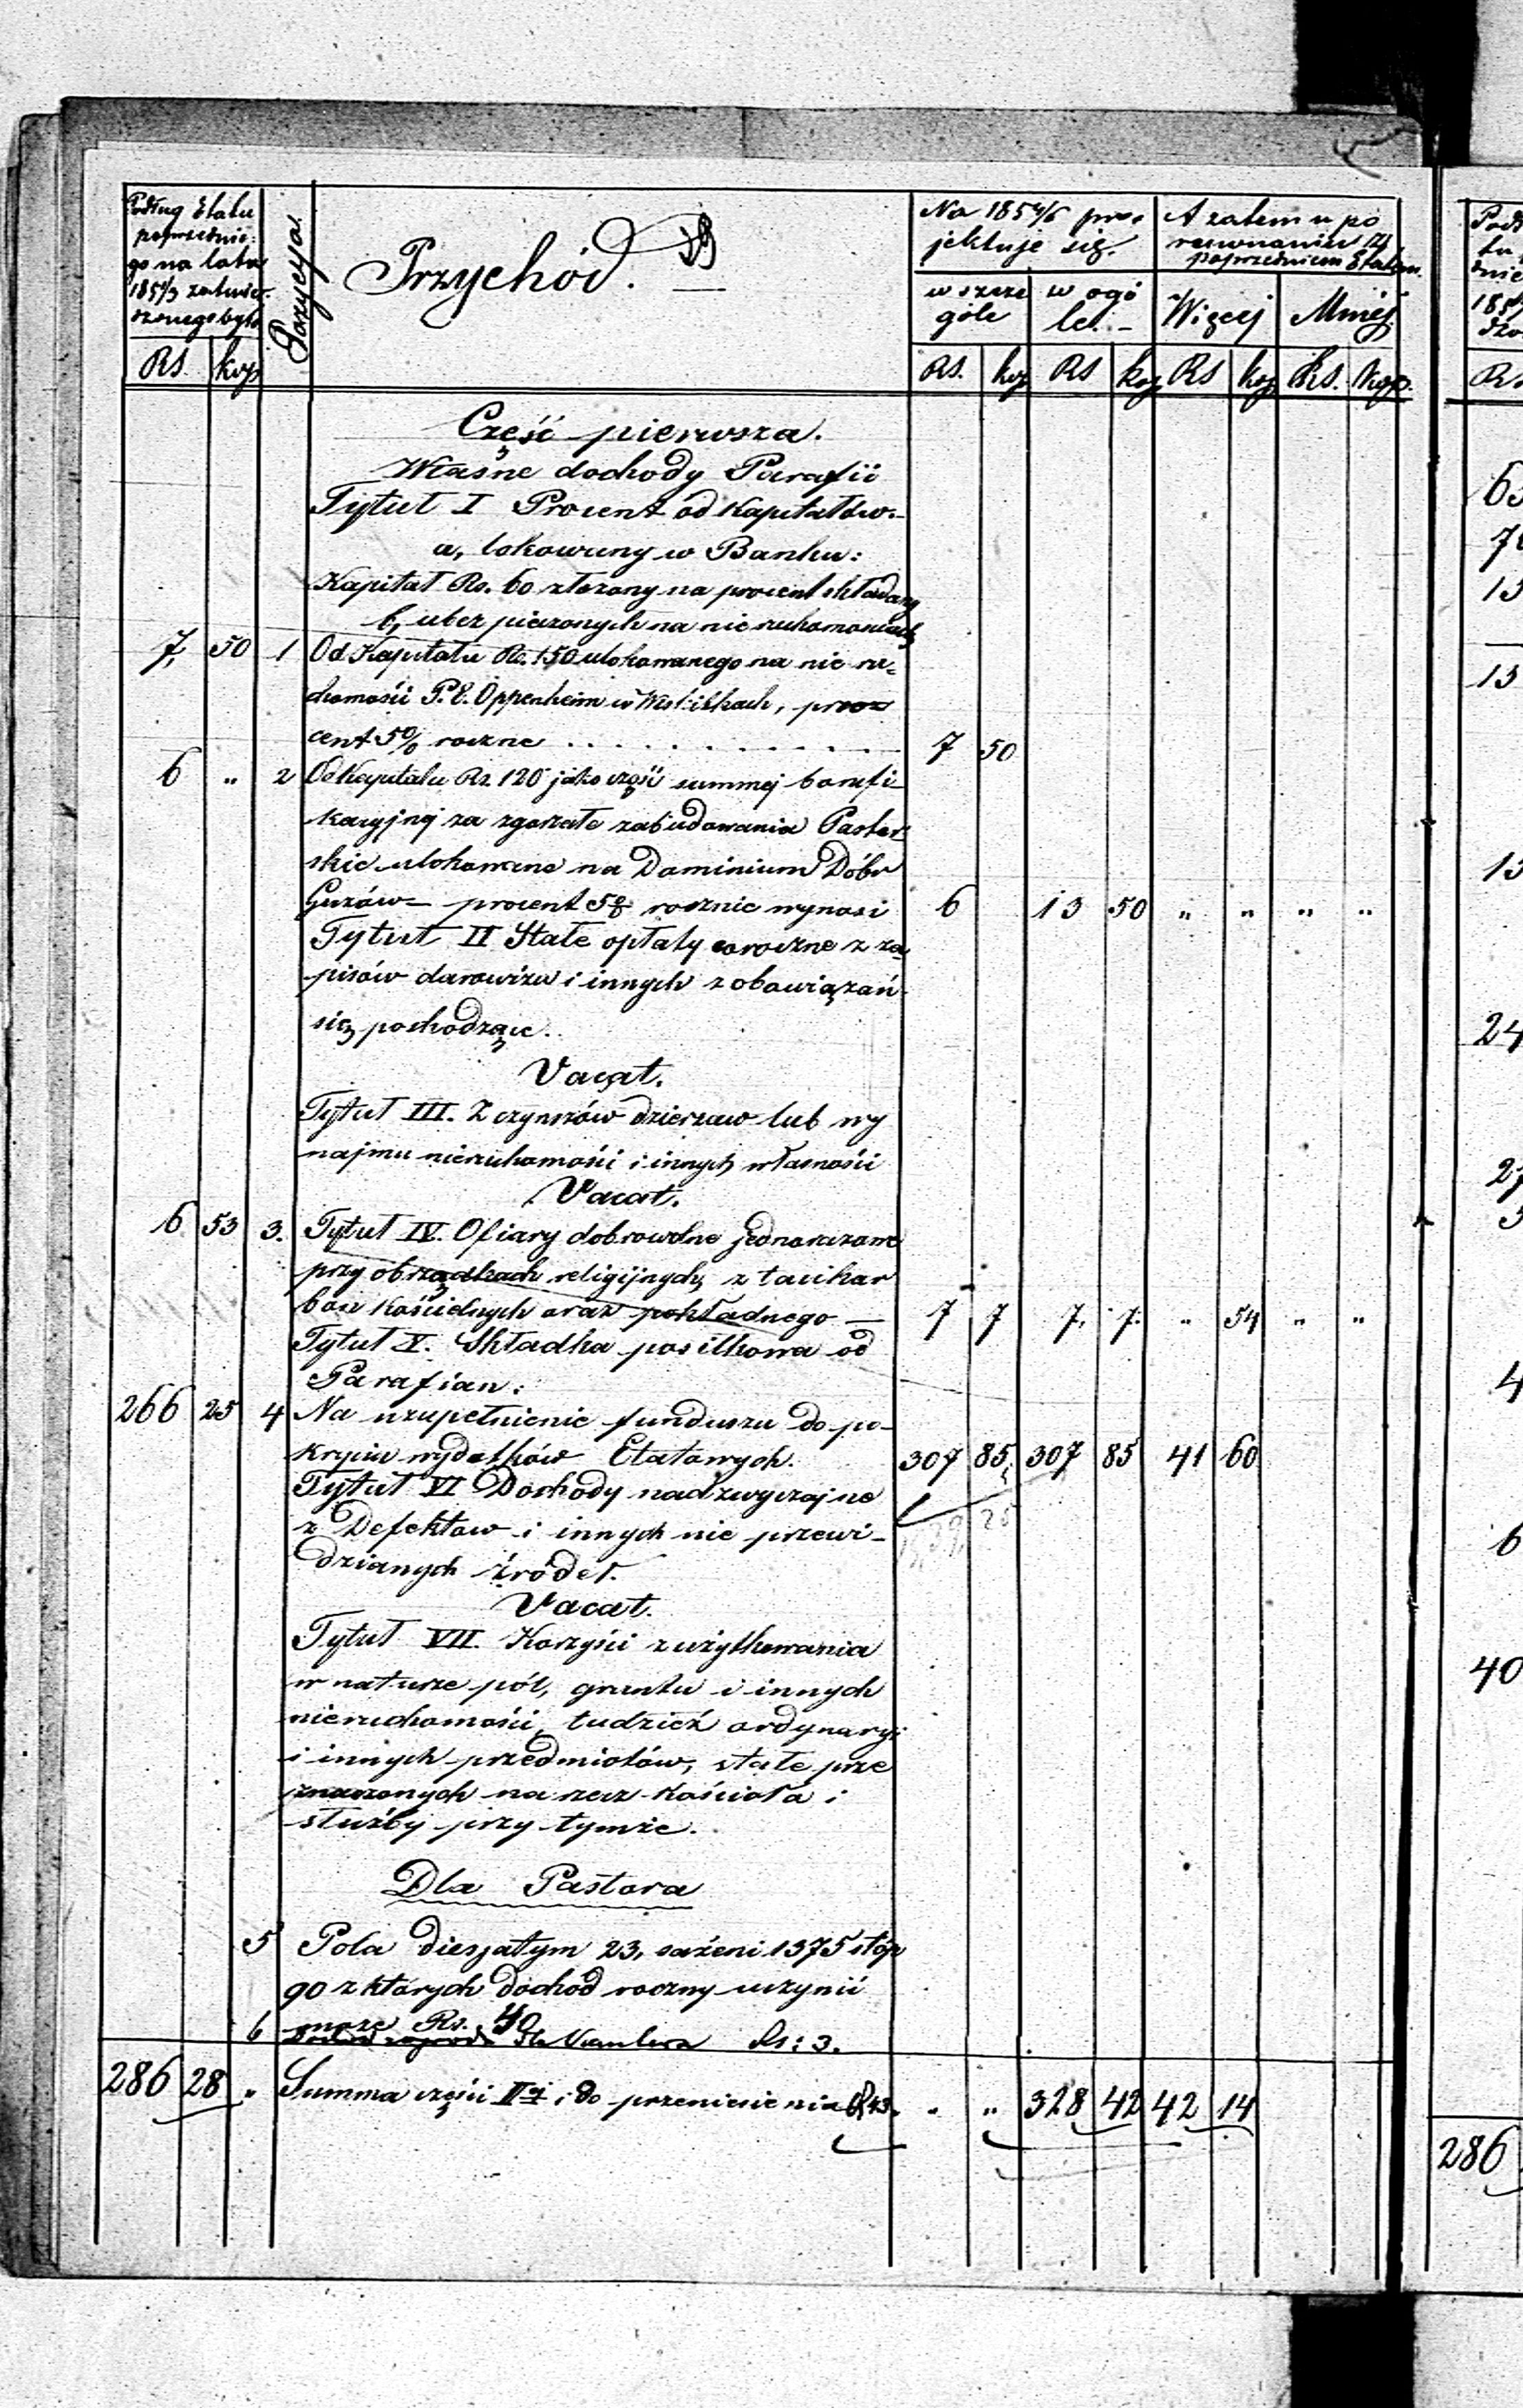 Podług Etatu
poprzednie-
go na lata
185 1/3 zatwier-
dzonego było
Pozycya.
Przychód.
Na 185 4/6 pro-
jektuje się.
A zatem w po
równaniu z
poprzedniem Etatem.
w szcze
góle
w ogó
le.
Więcej
Mniej
RS. kop
RS. kop RS kop RS kop RS. kop.
Część pierwsza.
Własne dochody Parafii
Tytuł I Procent od Kapitałów.
a, lokowany w Banku:
Kapitał Rs. 60 złożony na procent składany
b, ubezpieczonych na nieruchomościach
7, 50 1 Od Kapitału Rs. 150 ulokowanego na nieru-
chomości P. E. Oppenheim w Wiskitkach, pro
cent 5% roczne . . . . . . . 7 50
6 " 2 Od Kapitału Rs. 120 jako część summy bonifi-
kacyjnej za zgorzałe zabudowania Pastor
skie ulokowane na Dominium Dóbr
Guzów procent 5% rocznie wynosi 6 13 50 " " " "
Tytuł II Stałe opłaty coroczne z za
pisów darowizn i innych zobowiązań
się pochodzące.
Vacat.
Tytuł III. Z czynszów dzierzaw lub wy
najmu nieruchomości i innych własności
Vacat.
6 53 3. Tytuł IV. Ofiary dobrowolne jednorazowe
przy obrządkach religijnych, z tac i kar
bon Kościelnych oraz pokładnego — 7 7 7. 7. " 54 " "
Tytuł V. Składka posiłkowa od
Parafian:
266 25 4 Na uzupełnienie funduszu do po-
krycia wydatków Etatowych. 307 85 307 85 41 60
Tytuł VI Dochody nadzwyczajne
z Defektow i innych nie przewi-
dzianych źródeł.
Vacat.
Tytuł VII. Korzyści z użytkowania
w naturze pól, gruntu i innych
nieruchomości, tudzież ordynaryi
i innych przedmiotów, stale prze
znaczonych na rzecz Kościoła i
służby przy tymże.
Dla Pastora
5 Pola diesjatyn 23, sażeni 1375 stóp
90 z których dochód roczny uczynić
może Rs. 40
6 dla Kantora Rs: 3.
286 28 " Summa części IIej i do przeniesienia 43. " " 328 42 42 14
Podł
tu
dnie
185
Rs
63
13
13
13
24
27
4
6
40
286